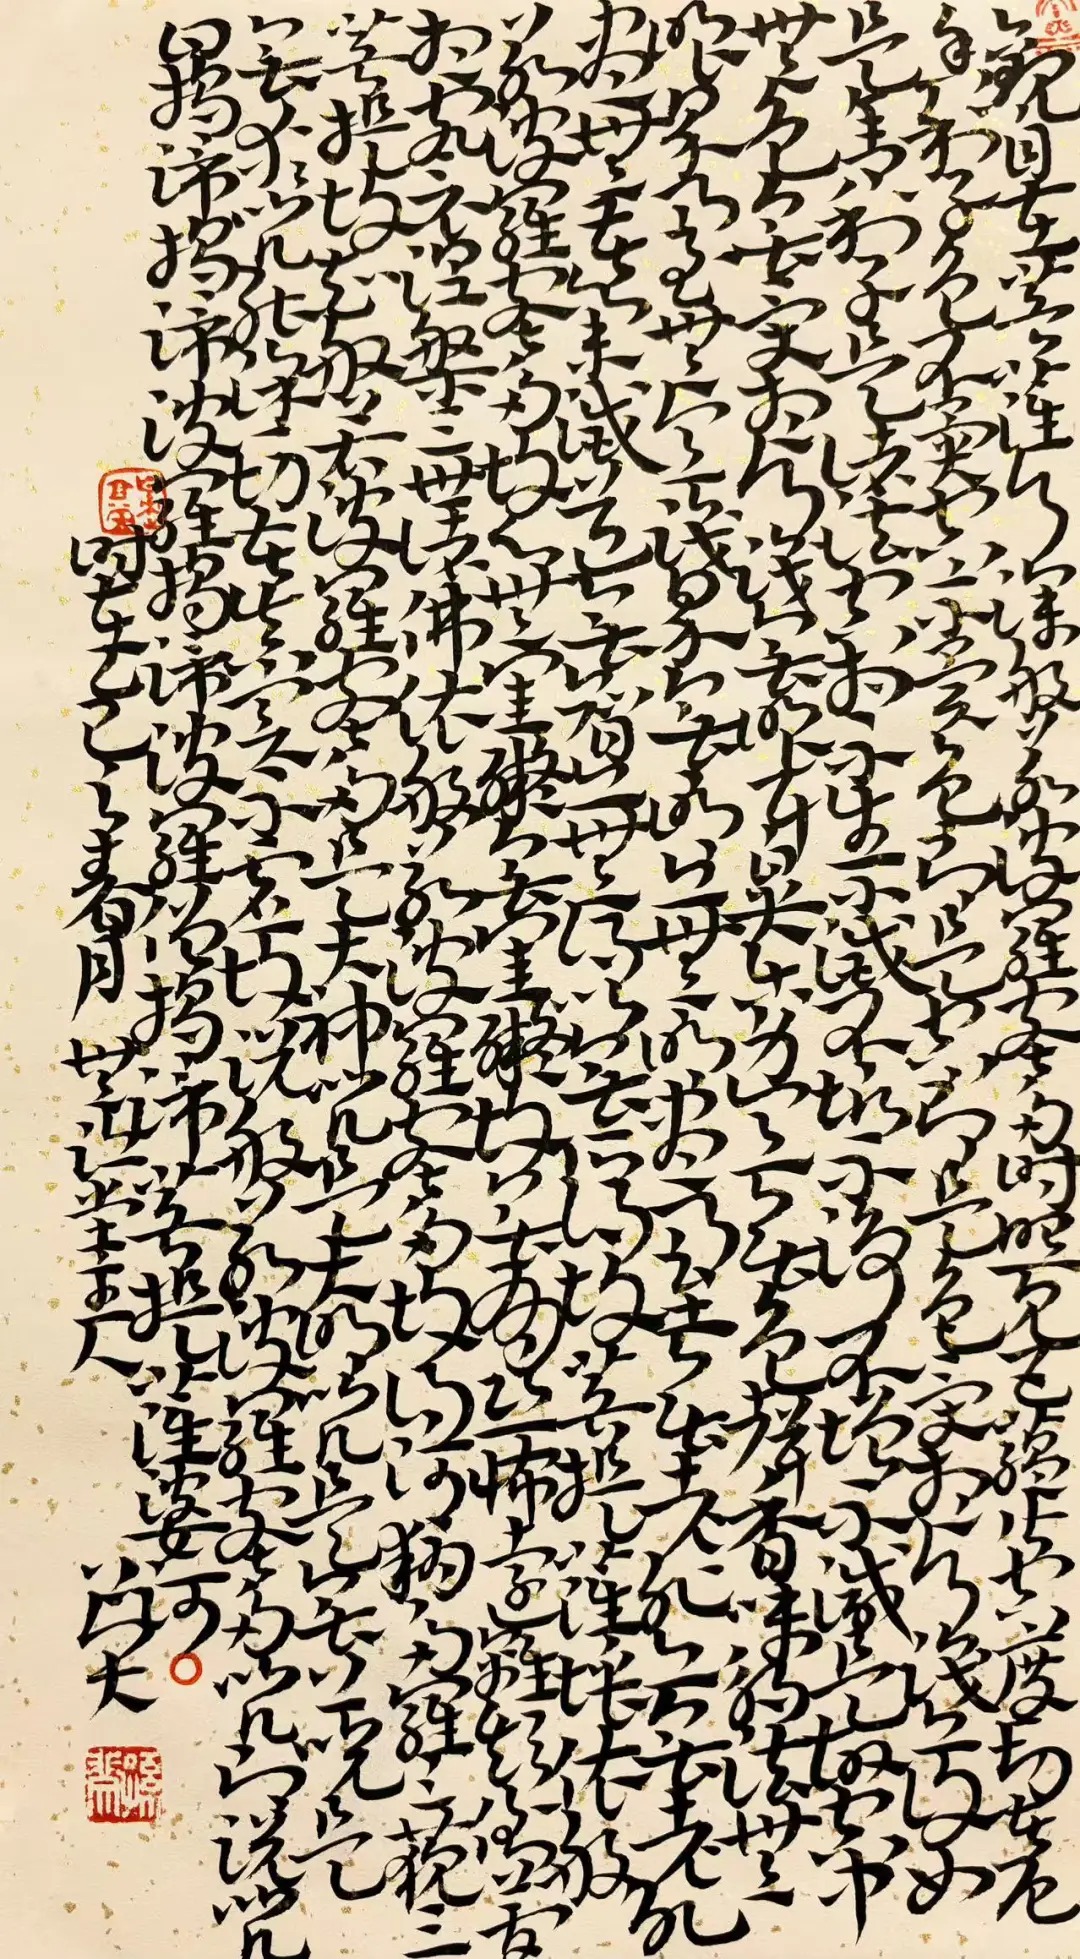 觀自在菩薩行深般若波羅蜜多時照見五蘊皆空度一切苦厄
舍利子色不異空空不異色色即是空空即是色受想行識亦復如
是舍利子是諸法空相不生不滅不垢不淨不增不減是故空中
無色無受想行識無眼耳鼻舌身意無色聲香味觸法無
眼界乃至無意識界無無明亦無無明盡乃至無老死亦無老死
盡無苦集滅道無智亦無得以無所得故菩提薩埵依般
若波羅蜜多故心無罣礙無罣礙故無有恐怖遠離顛倒夢
想究竟涅槃三世諸佛依般若波羅蜜多故得阿耨多羅三藐三
菩提故知般若波羅蜜多是大神咒是大明咒是無上咒是
無等等咒能除一切苦真實不虛故說般若波羅蜜多咒即說咒
曰揭諦揭諦波羅揭諦波羅僧揭諦菩提薩婆訶
時在乙巳之春月